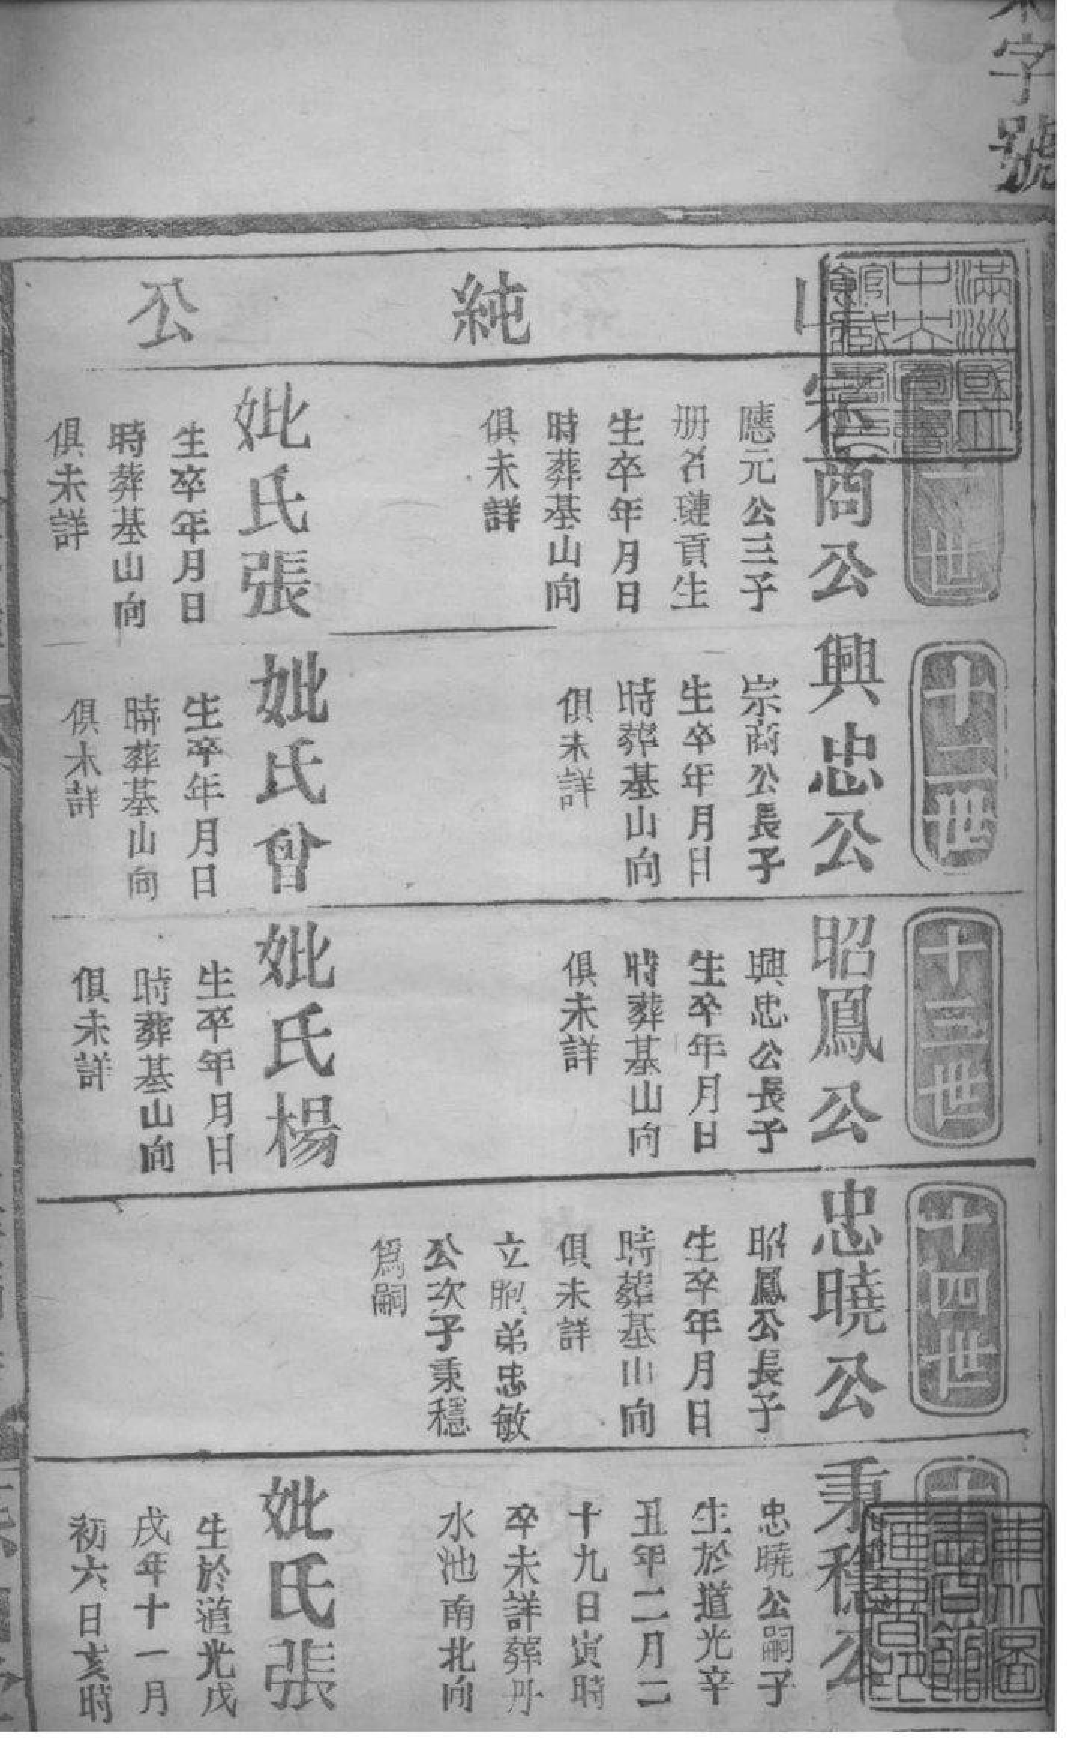 字號
山純公
世
宗商公
應元公三子
册名璉貢生
生卒年月日
時葬基山向
俱未詳
妣氏張
生卒年月日
時葬基山向
俱未詳
十二世
興忠公
宗商公長子
生卒年月日
時葬基山向
俱未詳
妣氏曾
生卒年月日
時葬基山向
俱未詳
十三世
昭鳳公
興忠公長子
生卒年月日
時葬基山向
俱未詳
妣氏楊
生卒年月日
時葬基山向
俱未詳
十四世
忠曉公
昭鳳公長子
生卒年月日
時葬基山向
俱未詳
立胞弟忠敏
公次子秉穩
爲嗣
十
秉穩公
忠曉公嗣子
生於道光辛
丑年二月二
十九日寅時
卒未詳葬丹
水池南北向
妣氏張
生於道光戊
戌年十一月
初六日亥時